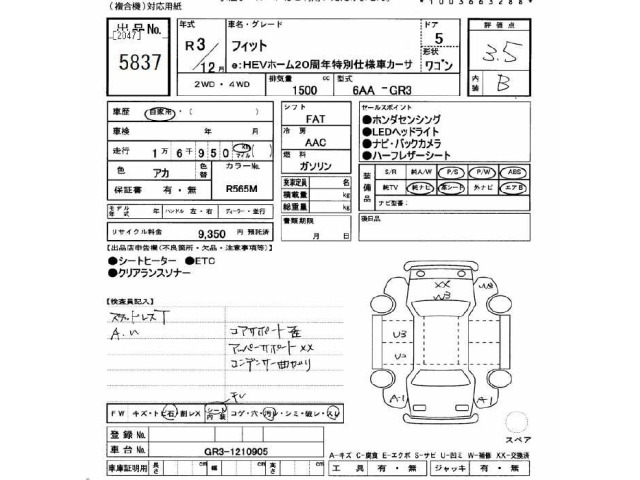 (複合機)対応用紙
*1003663288*
出品No. [2047] 5837
年式 R3/12月
車名・グレード フィット
e:HEVホーム20周年特別仕様車カーサ
ドア 5
形状 ワゴン
評価点 3.5
内装 B
2WD・4WD
排気量 1500 cc
型式 6AA-GR3
車歴 自家用・( )
車検 年 月
走行 1万6千950 km マイル
色 アカ 色替 カラーNo. R565M
保証書 有・無
モデル年式 年 ハンドル 左・右 ディーラー・並行
リサイクル料金 9,350 円 預託済
シフト FAT
冷房 AAC
燃料 ガソリン
乗車定員 名
積載量 kg
総重量 kg
書類期限 月 日
セールスポイント
●ホンダセンシング
●LEDヘッドライト
●ナビ・バックカメラ
●ハーフレザーシート
装備品 S/R 純A/W P/S P/W ABS
純TV 純ナビ 革シート 外ナビ エアB
ナビ型番:
後日品
【出品店申告欄(不良箇所・欠品・注意事項等)】
●シートヒーター ●ETC
●クリアランスソナー
【検査員記入】
スペアタイヤレス T
A.U
コアサポート歪
アッパーサポートXX
コンデンサー曲がり
キレ
FW キズ・トビ石・割レX シート内装 コゲ・穴・汚レ・シミ・破レ・スレ
登録No.
車台No. GR3-1210905
車庫証明用 長さ cm 幅 cm 高さ cm
XX
W3
U3
A1
A1
スペア
A-キズ C-腐食 E-エクボ S-サビ U-凹ミ W-補修 XX-交換済
工具 有・無 ジャッキ 有・無